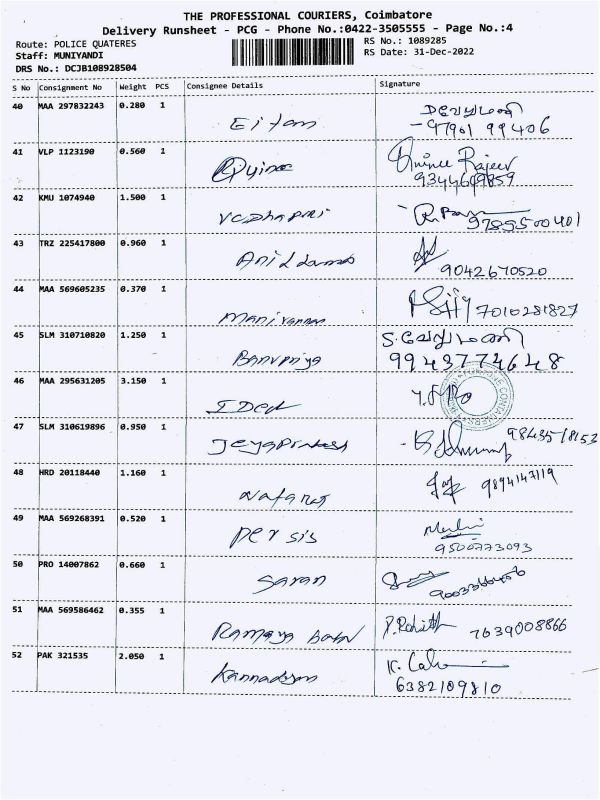 THE PROFESSIONAL COURIERS, Coimbatore
Delivery Runsheet - PCG - Phone No.:0422-3505555 - Page No.:4
Route: POLICE QUATERES RS No.: 1089285
Staff: MUNIYANDI RS Date: 31-Dec-2022
DRS No.: DCJB108928504
S No Consignment No Weight PCS Consignee Details Signature
40 MAA 297832243 0.280 1
97901 99406
41 VLP 1123190 0.560 1 Prince Rajeev
42 KMU 1074940 1.500 1
9789500401
43 TRZ 225417800 0.960 1
9042670520
44 MAA 569605235 0.370 1 Manivannan 7010281827
45 SLM 310710820 1.250 1 Banupriya
9943774648
46 MAA 295631205 3.150 1
47 SLM 310619896 0.950 1 Jeyaprakash
48 HRD 20118440 1.160 1 9894147119
49 MAA 569268391 0.520 1 Persis
9500773093
50 PRO 14007862 0.660 1 Saran
51 MAA 569586462 0.355 1 Ramaya babu P. Rohith 7639008866
52 PAK 321535 2.050 1 Kannadasan
6382109810